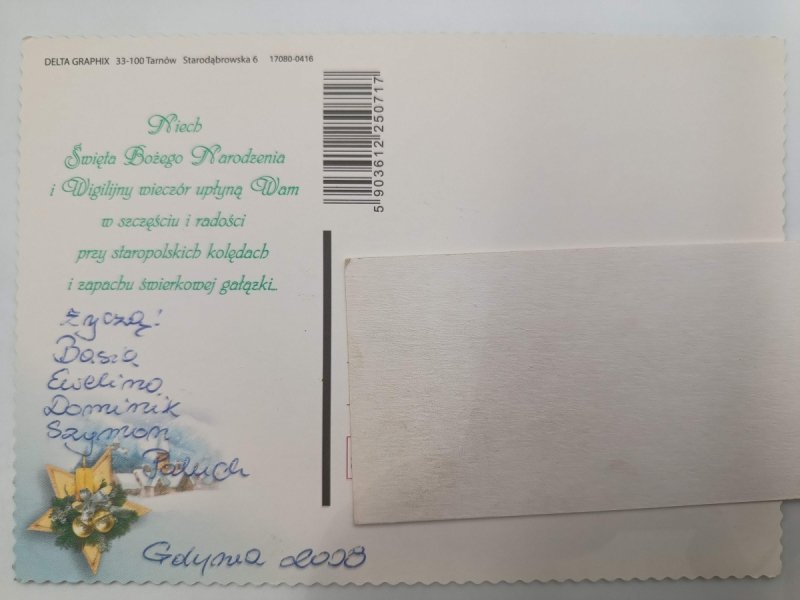 DELTA GRAPHIX 33-100 Tarnów Starodąbrowska 6 17080-0416
5 903612 250717
Niech
Święta Bożego Narodzenia
i Wigilijny wieczór upłyną Wam
w szczęściu i radości
przy staropolskich kolędach
i zapachu świerkowej gałązki...
Życzą!
Basia
Ewelina
Dominik
Szymon
Paluch
Gdynia 2008